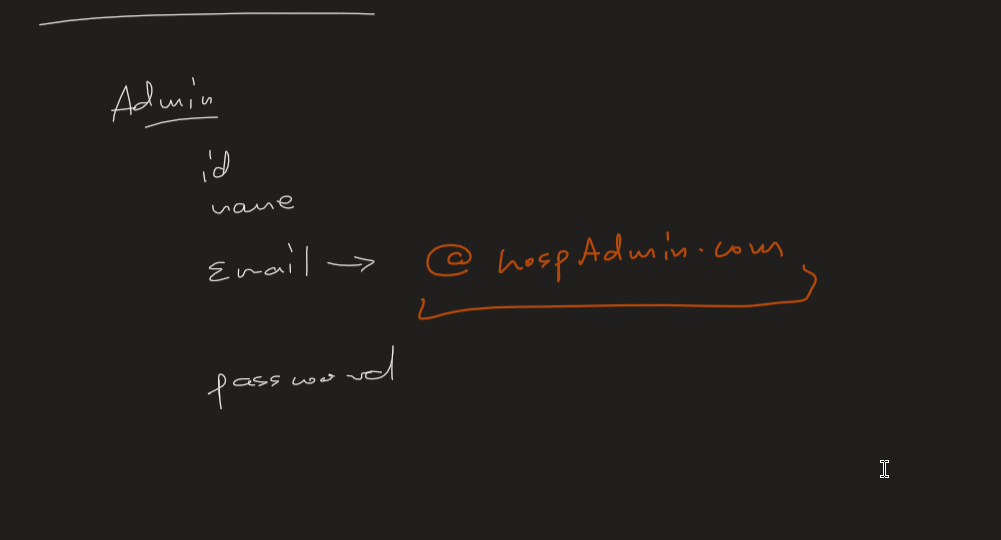 Admin
id
name
Email → @hospAdmin.com
password